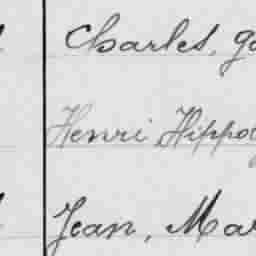 Charles, ga
Henri Hippol
Jean, Mar